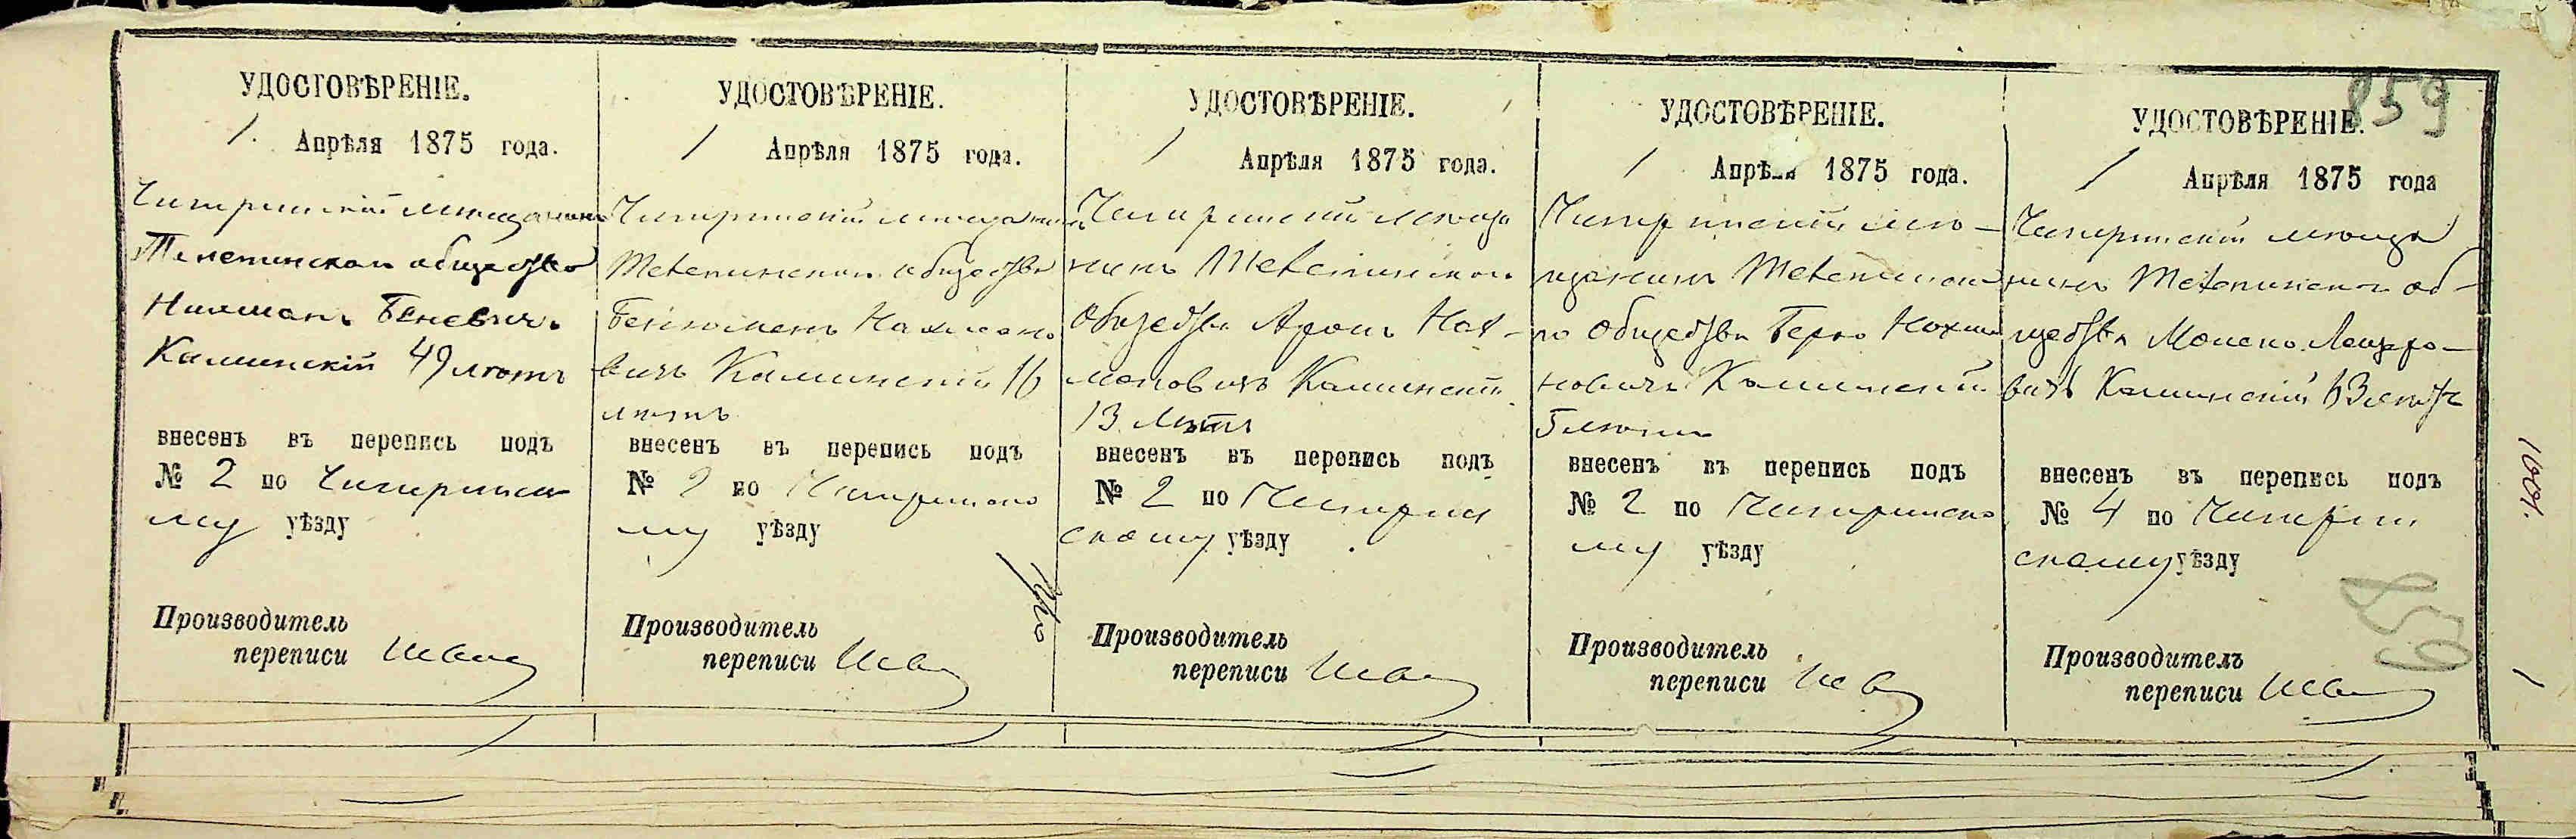 859
УДОСТОВѢРЕНІЕ.
1. Апрѣля 1875 года.
Чигиринскій мѣщанинъ
Телепинскаго общества
Нахманъ Беневичъ
Каминскій 49 лѣтъ
внесенъ въ перепись подъ
№ 2 по Чигиринско
му уѣзду
Производитель
переписи
УДОСТОВѢРЕНІЕ.
1 Апрѣля 1875 года.
Чигиринскій мѣщанинъ
Телепинскаго общества
Бенюменъ Нахмано
вичъ Каминскій 16
лѣтъ
внесенъ въ перепись подъ
№ 2 по Чигиринско
му уѣзду
Производитель
переписи
УДОСТОВѢРЕНІЕ.
1 Апрѣля 1875 года.
Чигиринскій мѣща
нинъ Телепинскаго
общества Аронъ Нах-
мановичъ Каминскій
13 лѣтъ
внесенъ въ перепись подъ
№ 2 по Чигирин
скому уѣзду
Производитель
переписи
УДОСТОВѢРЕНІЕ.
1 Апрѣля 1875 года.
Чигиринскій мѣ-
щанинъ Телепинска
го общества Берко Нахма
новичъ Каминскій
5 лѣтъ
внесенъ въ перепись подъ
№ 2 по Чигиринско
му уѣзду
Производитель
переписи
УДОСТОВѢРЕНІЕ.
1 Апрѣля 1875 года
Чигиринскій мѣща
нинъ Телепинскаго об-
щества Мошко
вичъ Каминскій лѣтъ
внесенъ въ перепись подъ
№ 4 по Чигирин
скому уѣзду
Производитель
переписи
859